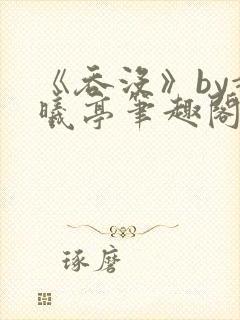 《吞没》by
曦亭笔趣阁
琢磨